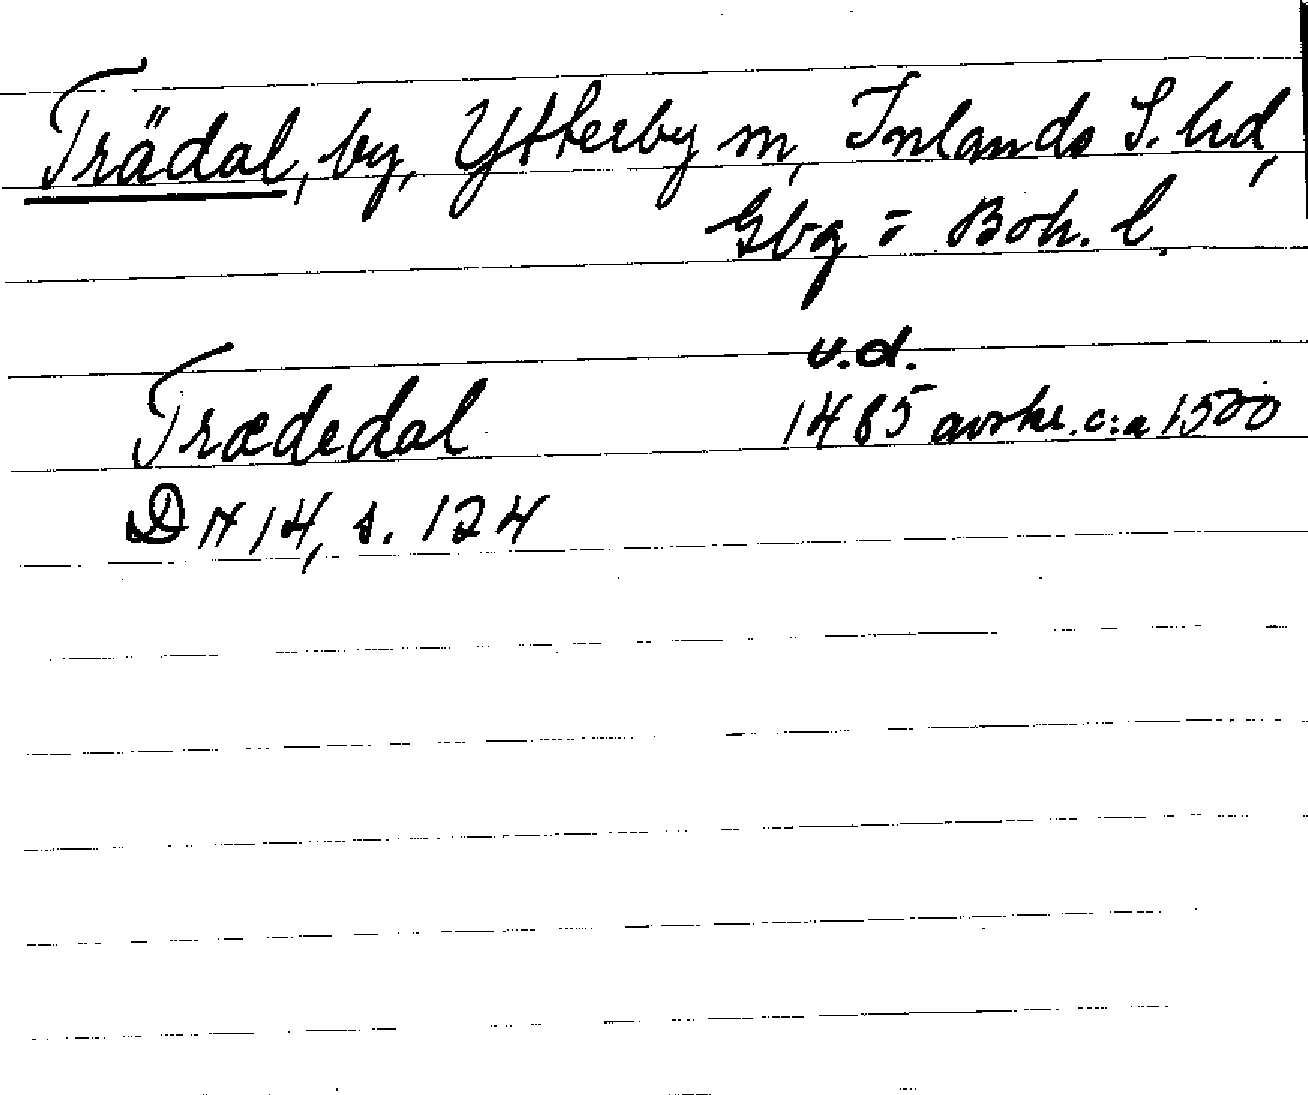 Trädal, by, Ytterby sn, Inlands S. hd,
Gbg = Boh. l.
u.d.
Trædedal 1485 avskr. c:a 1500
DN 14, s. 124